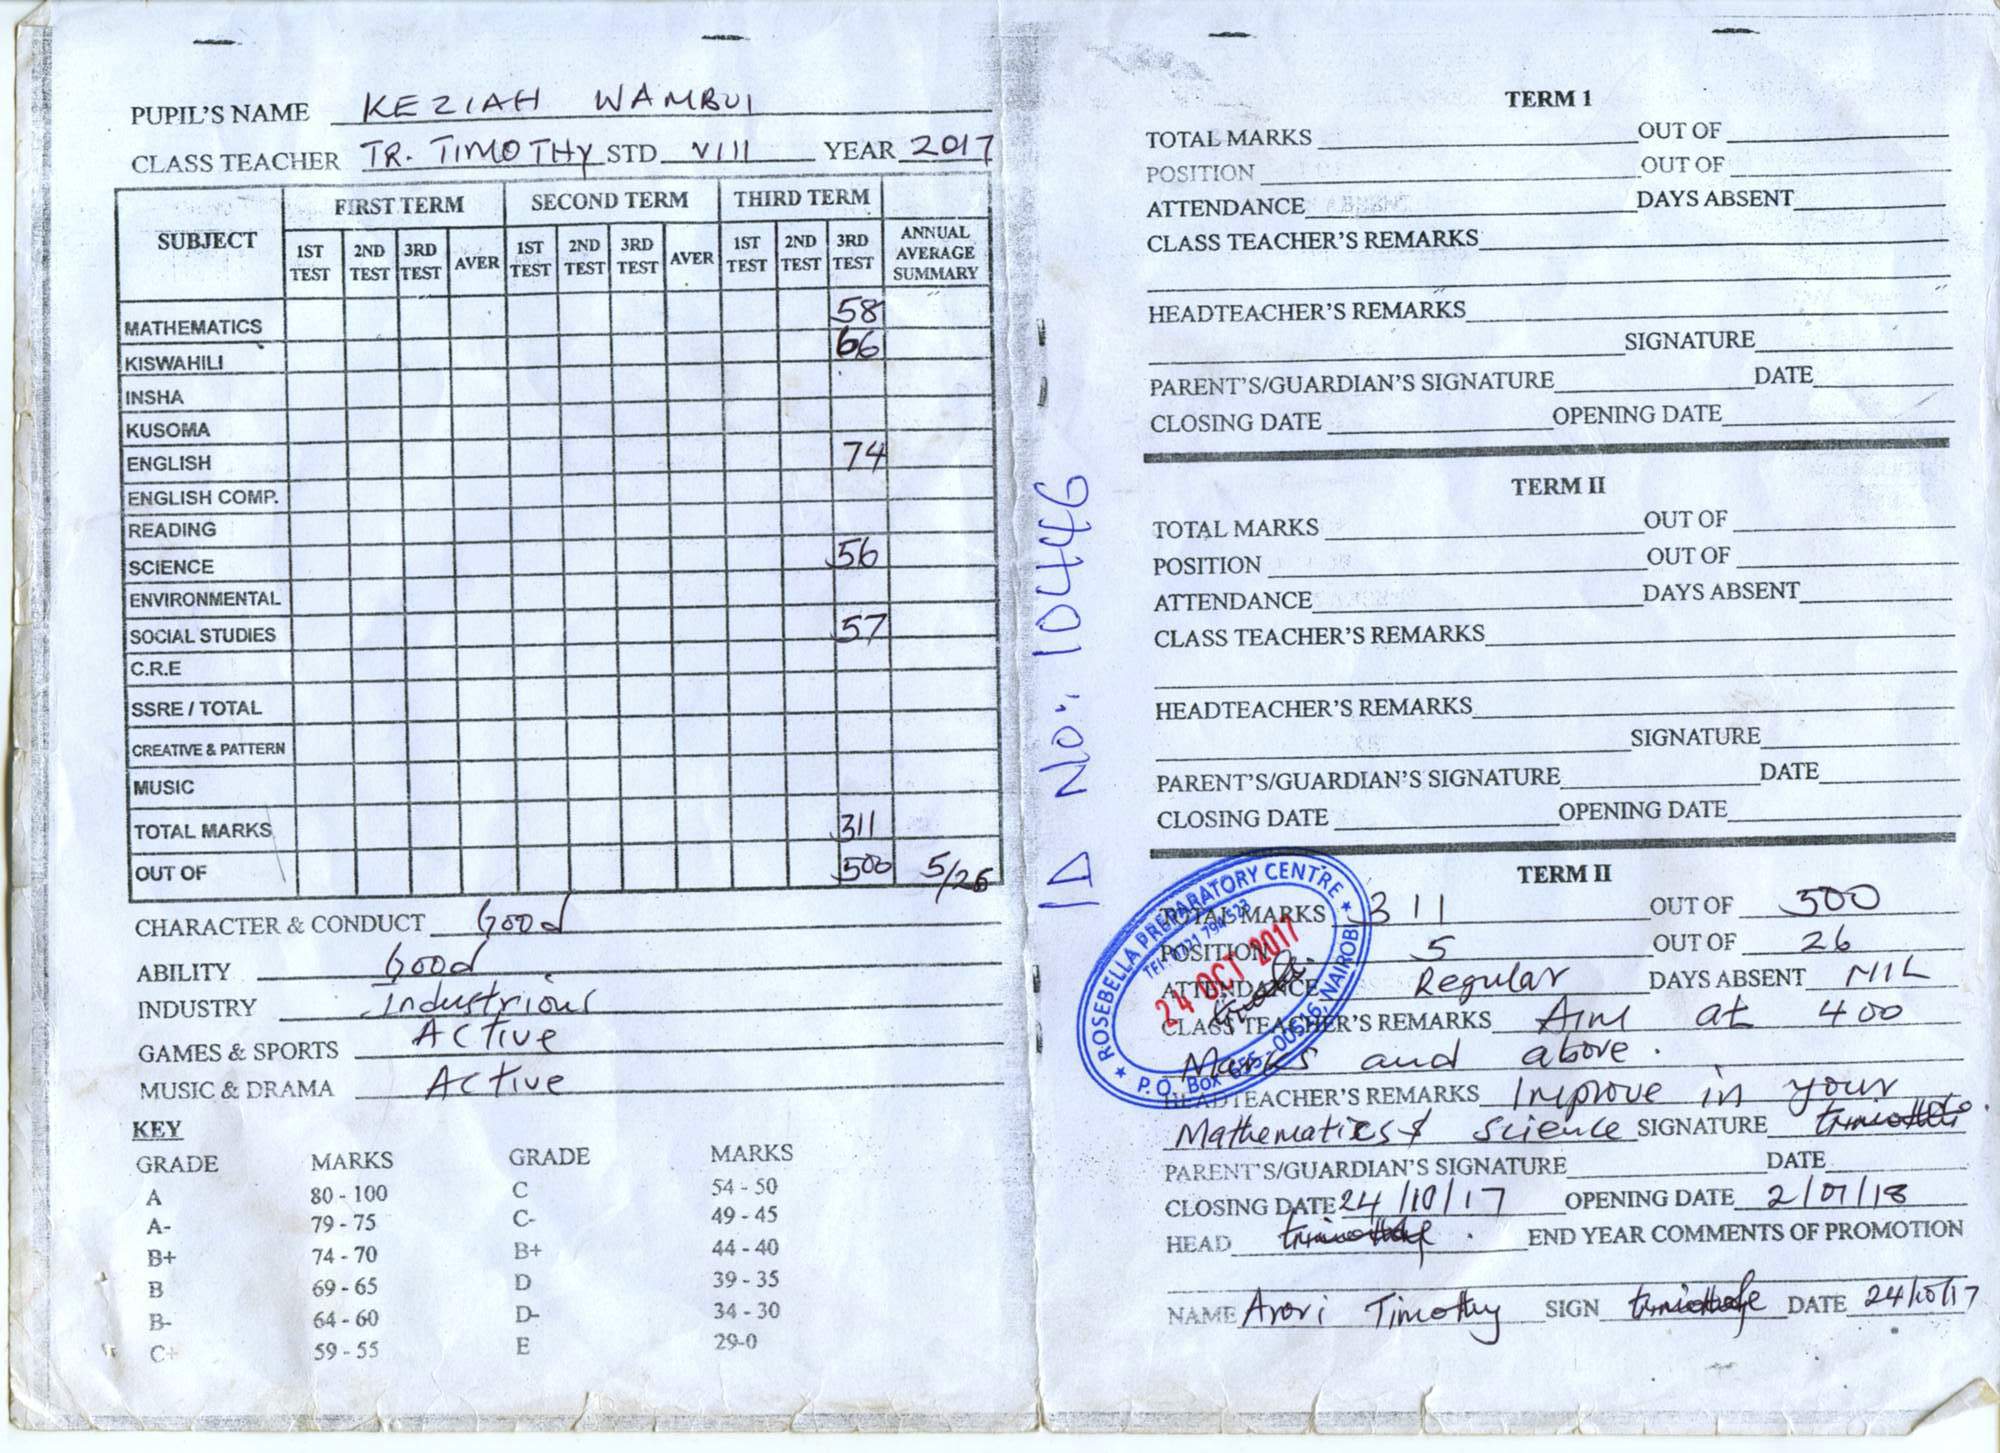 PUPIL'S NAME KEZIAH WAMBUI
CLASS TEACHER TR. TIMOTHY STD VIII YEAR 2017
SUBJECT FIRST TERM SECOND TERM THIRD TERM ANNUAL AVERAGE SUMMARY
1ST TEST 2ND TEST 3RD TEST AVER 1ST TEST 2ND TEST 3RD TEST AVER 1ST TEST 2ND TEST 3RD TEST
MATHEMATICS 58
KISWAHILI 66
INSHA
KUSOMA
ENGLISH 74
ENGLISH COMP.
READING
SCIENCE 56
ENVIRONMENTAL
SOCIAL STUDIES 57
C.R.E
SSRE / TOTAL
CREATIVE & PATTERN
MUSIC
TOTAL MARKS 311
OUT OF 500 5/26
CHARACTER & CONDUCT Good
ABILITY Good
INDUSTRY Industrious
GAMES & SPORTS Active
MUSIC & DRAMA Active
KEY
GRADE MARKS GRADE MARKS
A 80 - 100 C 54 - 50
A- 79 - 75 C- 49 - 45
B+ 74 - 70 B+ 44 - 40
B 69 - 65 D 39 - 35
B- 64 - 60 D- 34 - 30
C+ 59 - 55 E 29-0
ID No: 10446
TERM 1
TOTAL MARKS OUT OF
POSITION OUT OF
ATTENDANCE DAYS ABSENT
CLASS TEACHER'S REMARKS
HEADTEACHER'S REMARKS
SIGNATURE
PARENT'S/GUARDIAN'S SIGNATURE DATE
CLOSING DATE OPENING DATE
TERM II
TOTAL MARKS OUT OF
POSITION OUT OF
ATTENDANCE DAYS ABSENT
CLASS TEACHER'S REMARKS
HEADTEACHER'S REMARKS
SIGNATURE
PARENT'S/GUARDIAN'S SIGNATURE DATE
CLOSING DATE OPENING DATE
TERM II
TOTAL MARKS 311 OUT OF 500
POSITION 5 OUT OF 26
ATTENDANCE Regular DAYS ABSENT NIL
CLASS TEACHER'S REMARKS Aim at 400
Marks and above.
HEADTEACHER'S REMARKS Improve in your
Mathematics & Science SIGNATURE
PARENT'S/GUARDIAN'S SIGNATURE DATE
CLOSING DATE 24/10/17 OPENING DATE 2/01/18
HEAD END YEAR COMMENTS OF PROMOTION
NAME Arori Timothy SIGN DATE 24/10/17
ROSEBELLA PREPARATORY CENTRE
24 OCT 2017
NAIROBI